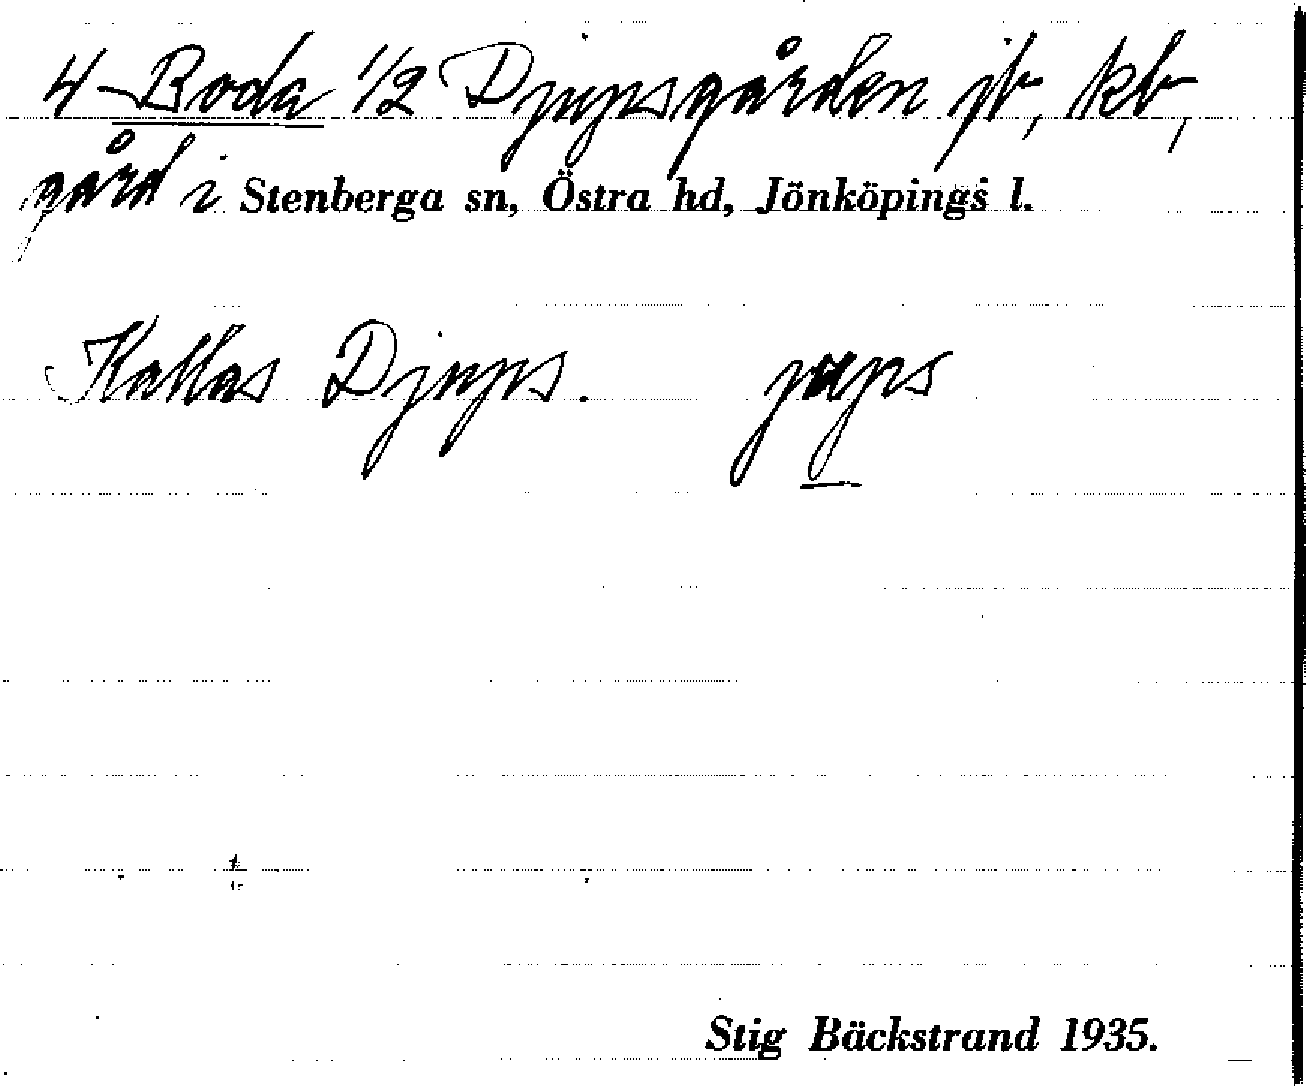 4 Boda 1/2 Djupsgården jb, kb,
gård i Stenberga sn, Östra hd, Jönköpings l.
Kallas Djups. jups
Stig Bäckstrand 1935.